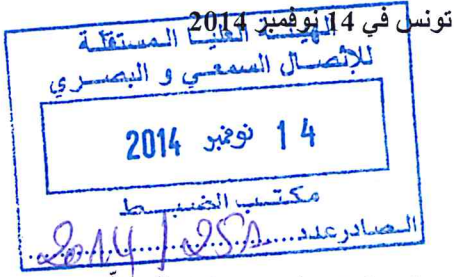 تونس في 14 نوفمبر 2014
الهيئة العليا المستقلة
للإتصال السمعي و البصري
14 نوفمبر 2014
مكتب الضبط
الصادر عدد 2014/251